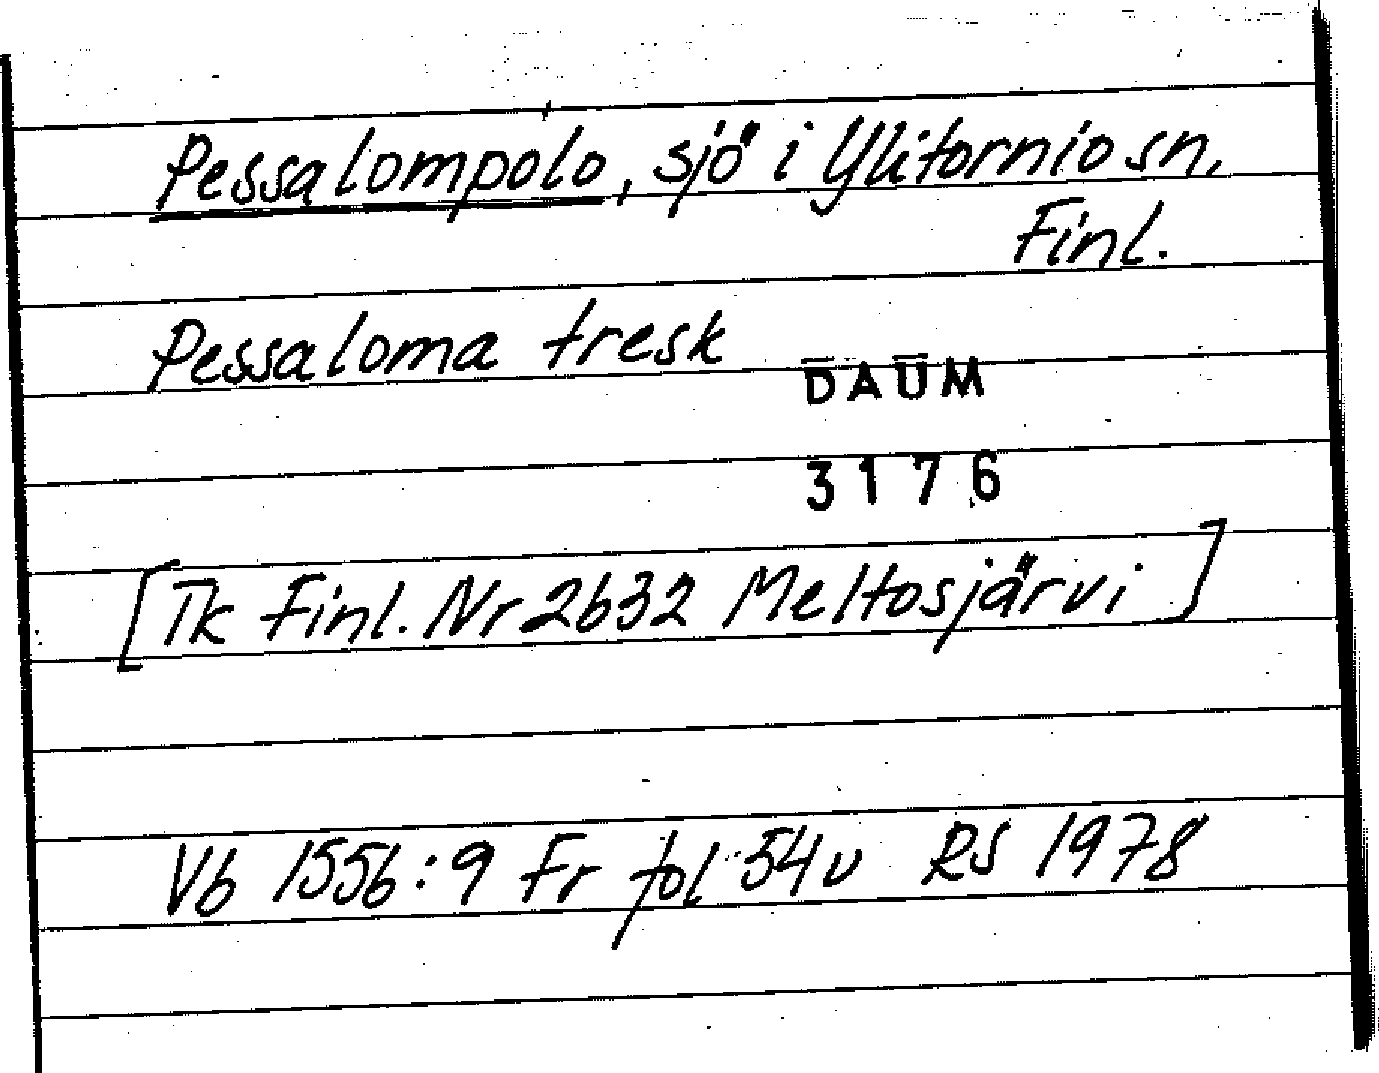 Pessalompolo, sjö i Ylitornio sn,
Finl.
Pessaloma tresk
DAUM
3176
[Tk Finl. Nr 2632 Meltosjärvi]
Vb 1556:9 Fr fol 54 v RS 1978